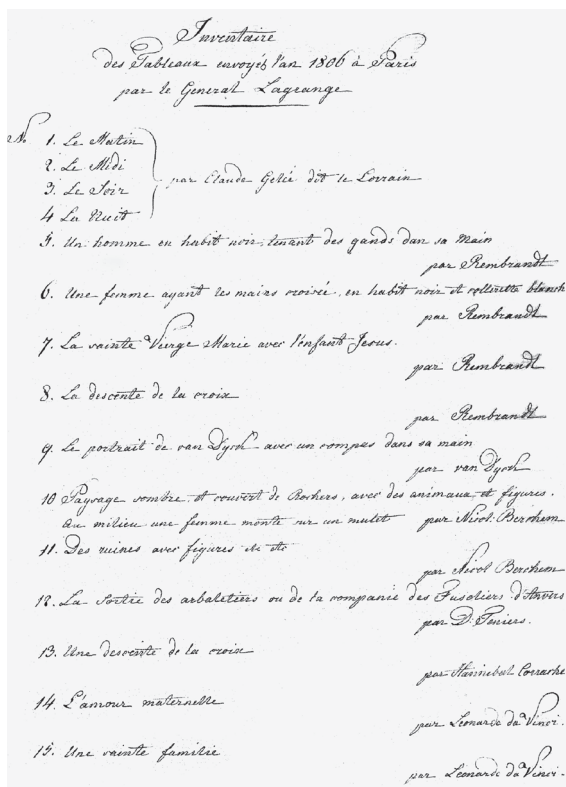 Inventaire
des Tableaux envoyés l'an 1806 à Paris
par le General Lagrange
No 1. Le Matin
2. Le Midi
3. Le Soir
4 La Nuit
par Claude Gelée dit le Lorrain
5. Un homme en habit noir, tenant des gands dan sa main
par Rembrandt
6. Une femme ayant les mains croisée, en habit noir et collerette blanch
par Rembrandt
7. La sainte Vierge Marie avec l'enfant Jesus.
par Rembrandt
8. La descente de la croix
par Rembrandt
9. Le portrait de van Dyck avec un compas dans sa main
par van Dyck
10 Paysage sombre et couvert de Rochers, avec des animaux et figures.
au milieu une femme monté sur un mulet par Nicol. Berchem
11. Des ruines avec figures etc etc
par Nicol Berchem
12. La Sortie des arbaletiers ou de la companie des Fuseliers d'Anvers
par D. Teniers.
13. Une descente de la croix
par Hannibal Carrache
14. L'amour maternelle
par Leonardo da Vinci.
15. Une sainte familie
par Leonardo da Vinci.